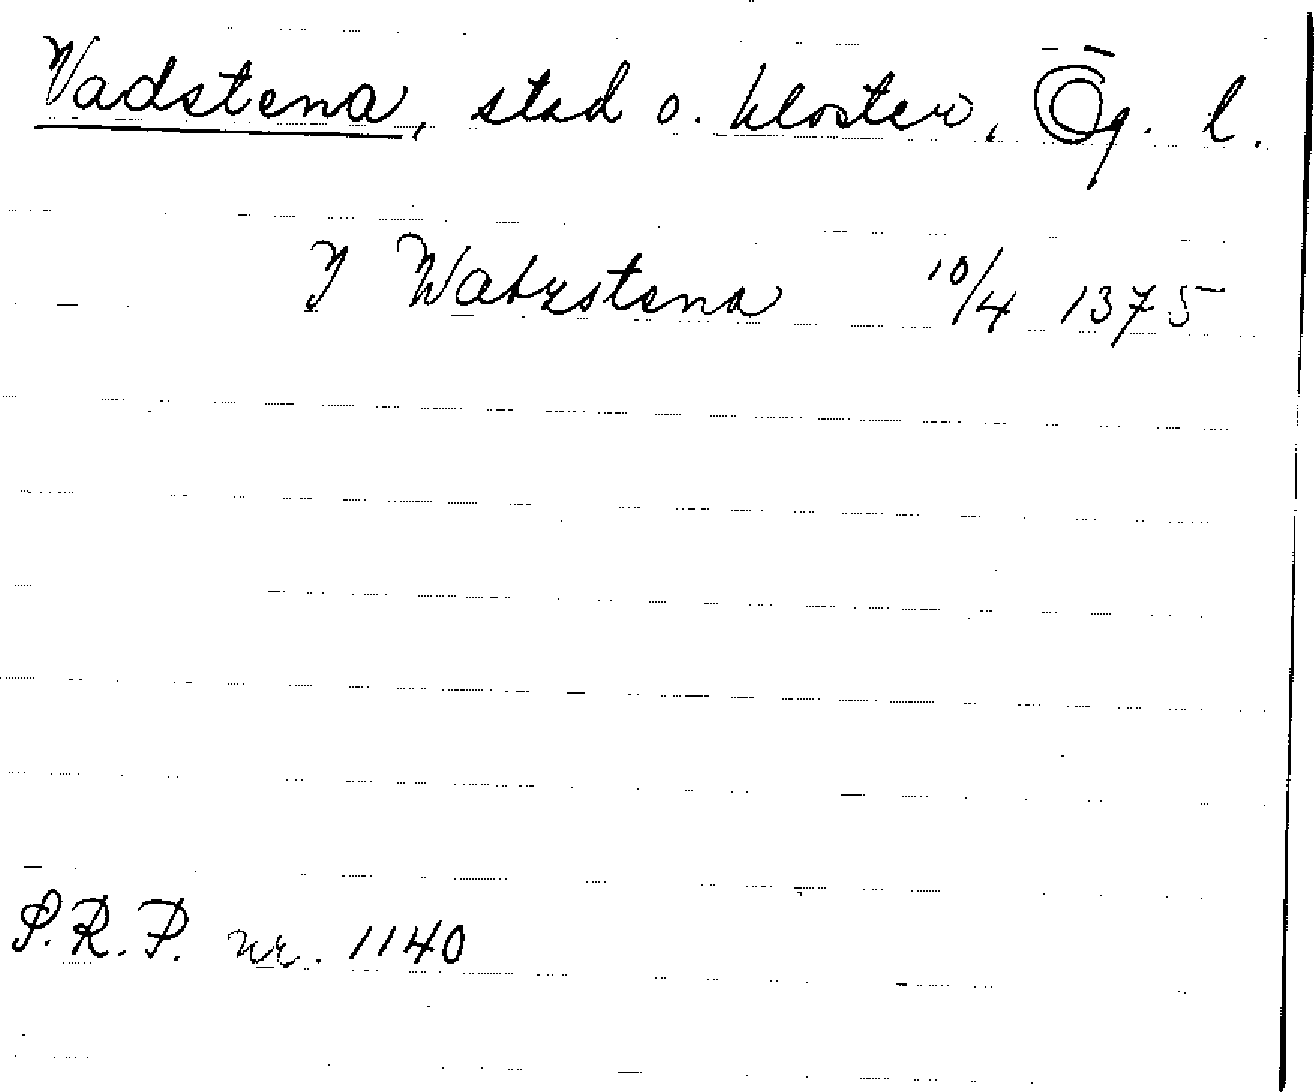 Vadstena, stad o. kloster, Ög. l.
J Watzstena 10/4 1375
S.R.P. nr. 1140